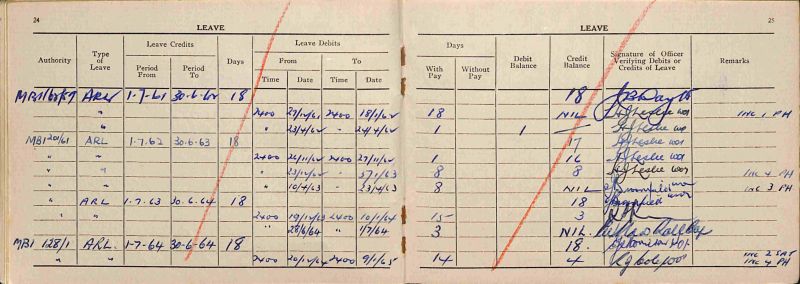 24
LEAVE
Authority
Type of Leave
Leave Credits
Period From
Period To
Days
Leave Debits
From
To
Time
Date
Time
Date
ARL 1-7-61 30-6-62 18
2400 2400
"
MB1 20/61 ARL 1.7.62 30.6.63 18
" " 2400 26/11/62 2400 27/11/62
" "
" " " 10/4/63 " 23/4/63
" ARL 1.7.63 30.6.64 18
" " 2400 19/12/63 2400 10/1/64
" 28/6/64 " 1/7/64
MB1 128/1 ARL 1-7-64 30-6-64 18
2400 20/12/64 2400 9/1/65
LEAVE
25
Days
With Pay
Without Pay
Debit Balance
Credit Balance
Signature of Officer Verifying Debits or Credits of Leave
Remarks
18
18 NIL INC 1 PH
1 1 —
17
1 16
8 8 INC 4 PH
8 NIL INC 3 PH
18
15 3
3 NIL
18
14 4 INC 2 SAT
INC 4 PH